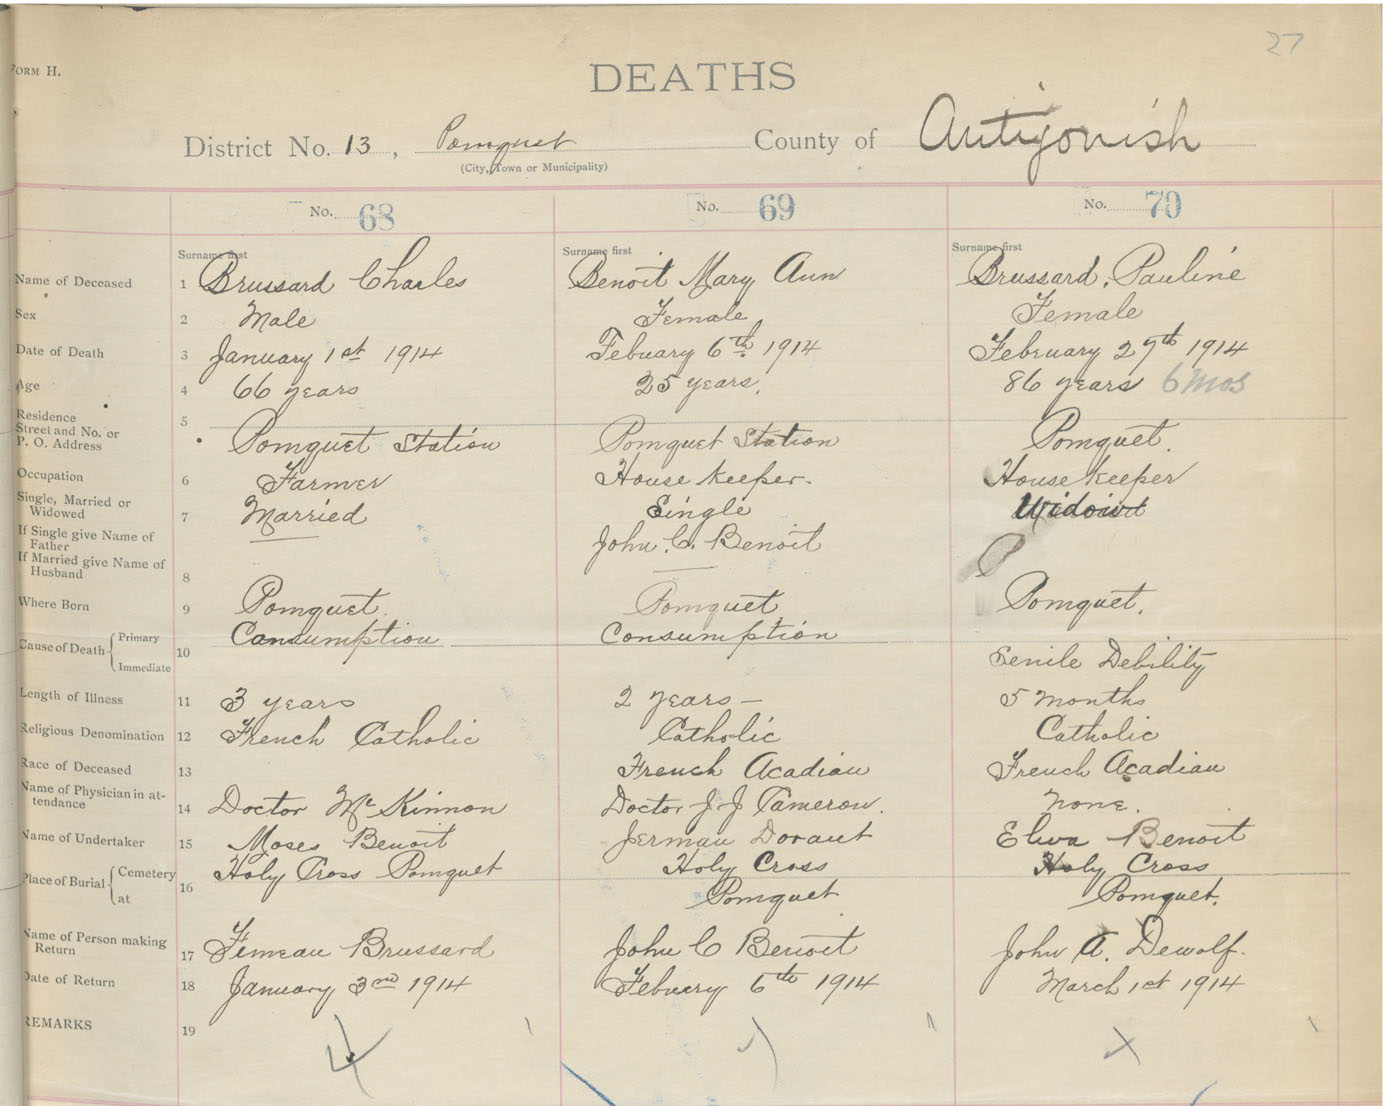 27
FORM H.
DEATHS
District No. 13, Pomquet County of Antigonish
(City, Town or Municipality)
No. 68 No. 69 No. 70
Surname first Surname first Surname first
Name of Deceased 1 Brussard Charles Benoit Mary Ann Brussard, Pauline
Sex 2 Male Female Female
Date of Death 3 January 1st 1914 Febuary 6th 1914 February 27th 1914
Age 4 66 years 25 years. 86 years 6 mos
Residence
Street and No. or 5
P. O. Address Pomquet Station Pomquet Station Pomquet.
Occupation 6 Farmer House keeper. House keeper
Single, Married or
Widowed 7 Married Single Widowd
If Single give Name of
Father John C. Benoit
If Married give Name of
Husband 8
Where Born 9 Pomquet. Pomquet Pomquet.
Cause of Death Primary Consumption Consumption
10 Senile Debility
Immediate
Length of Illness 11 3 years 2 years — 5 months
Religious Denomination 12 French Catholic Catholic Catholic
Race of Deceased 13 French Acadian French Acadian
Name of Physician in at-
tendance 14 Doctor McKinnon Doctor J. J Cameron. none.
Name of Undertaker 15 Moses Benoit Jerman Dorant Benoit
Place of Burial Cemetery Holy Cross Pomquet Holy Cross Holy Cross
at 16 Pomquet Pomquet.
Name of Person making
Return 17 Simeau Brussard John C Benoit John A. Dewolf.
Date of Return 18 January 3rd 1914 Febuery 6th 1914 March 1st 1914
REMARKS 19